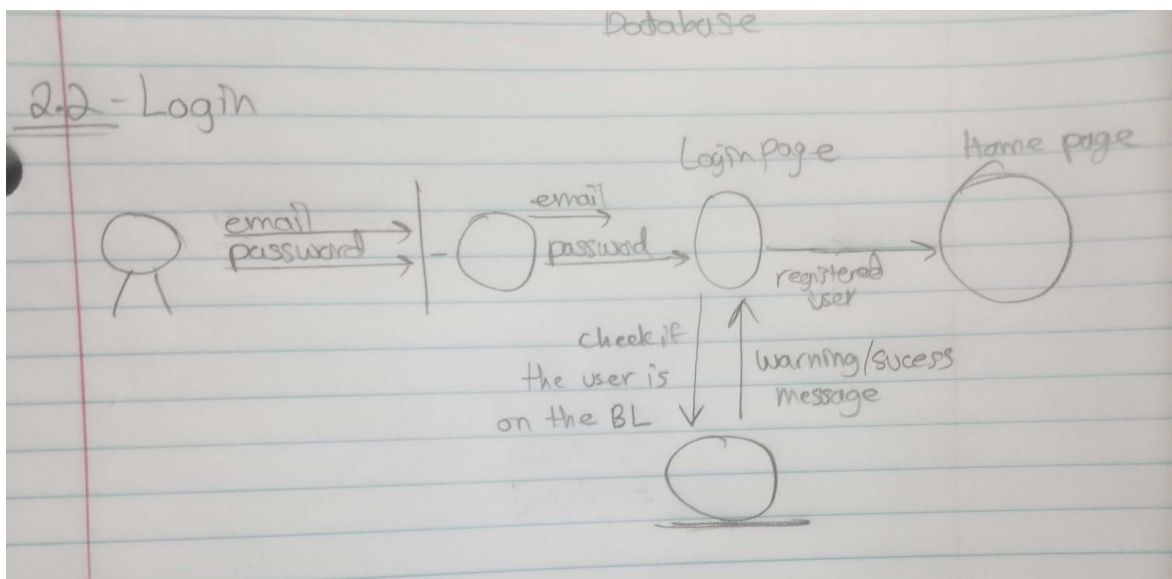 Database
2.2 - Login
Login page
Home page
email
password
email
password
registered
user
check if
the user is
on the BL
warning/sucess
message